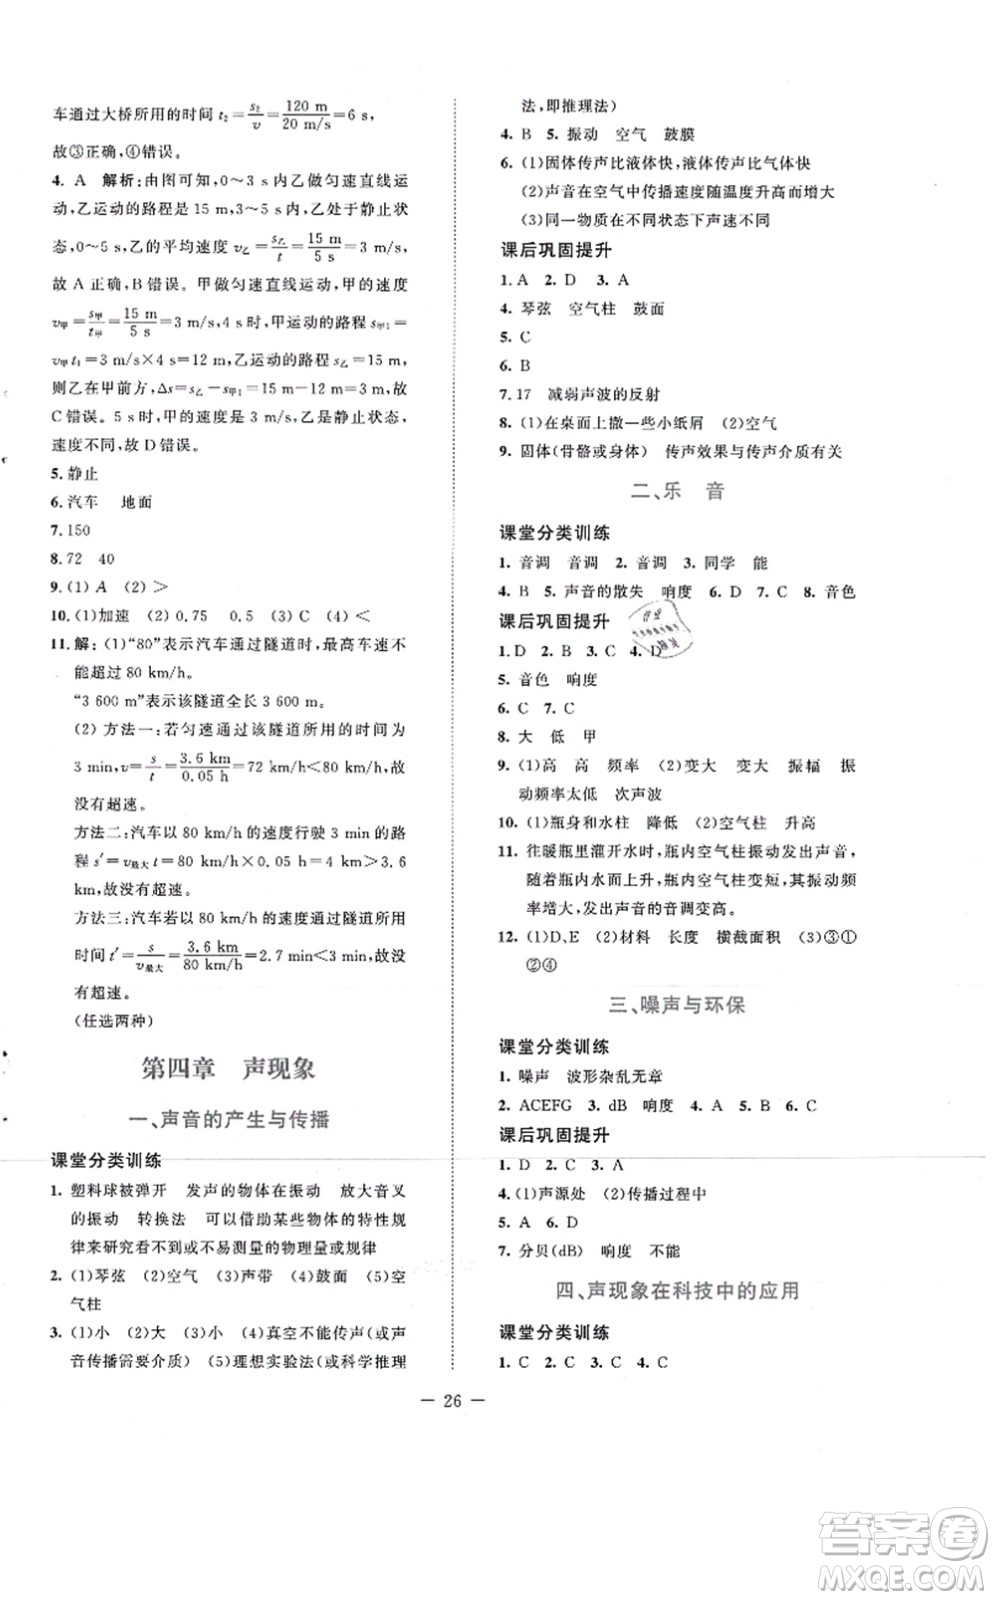 车通过大桥所用的时间 t₂=s₂/v=120 m/20 m/s=6 s,
故③正确,④错误。
4. A 解析:由图可知,0～3 s内乙做匀速直线运
动,乙运动的路程是 15 m,3～5 s内,乙处于静止状
态,0～5 s,乙的平均速度 v乙=s乙/t=15 m/5 s=3 m/s,
故 A 正确,B 错误。甲做匀速直线运动,甲的速度
v甲=s甲/t甲=15 m/5 s=3 m/s,4 s时,甲运动的路程 s甲1=
v甲 t₁=3 m/s×4 s=12 m,乙运动的路程 s乙=15 m,
则乙在甲前方,Δs=s乙－s甲1=15 m－12 m=3 m,故
C 错误。5 s时,甲的速度是 3 m/s,乙是静止状态,
速度不同,故 D 错误。
5. 静止
6. 汽车 地面
7. 150
8. 72 40
9. (1) A (2) >
10. (1)加速 (2) 0.75 0.5 (3) C (4) <
11. 解:(1)“80”表示汽车通过隧道时,最高车速不
能超过 80 km/h。
“3 600 m”表示该隧道全长 3 600 m。
(2) 方法一:若匀速通过该隧道所用的时间为
3 min,v=s/t=3.6 km/0.05 h=72 km/h<80 km/h,故
没有超速。
方法二:汽车以 80 km/h的速度行驶 3 min的路
程 s′=v最大 t=80 km/h×0.05 h=4 km>3.6
km,故没有超速。
方法三:汽车若以 80 km/h的速度通过隧道所用
时间 t′=s/v最大=3.6 km/80 km/h=2.7 min<3 min,故没
有超速。
(任选两种)
第四章 声现象
一、声音的产生与传播
课堂分类训练
1. 塑料球被弹开 发声的物体在振动 放大音叉
的振动 转换法 可以借助某些物体的特性规
律来研究看不到或不易测量的物理量或规律
2. (1)琴弦 (2)空气 (3)声带 (4)鼓面 (5)空
气柱
3. (1)小 (2)大 (3)小 (4)真空不能传声(或声
音传播需要介质) (5)理想实验法(或科学推理
法,即推理法)
4. B 5. 振动 空气 鼓膜
6. (1)固体传声比液体快,液体传声比气体快
(2)声音在空气中传播速度随温度升高而增大
(3)同一物质在不同状态下声速不同
课后巩固提升
1. A 2. D 3. A
4. 琴弦 空气柱 鼓面
5. C
6. C
7. 17 减弱声波的反射
8. (1)在桌面上撒一些小纸屑 (2)空气
9. 固体(骨骼或身体) 传声效果与传声介质有关
二、乐 音
课堂分类训练
1. 音调 音调 2. 音调 3. 同学 能
4. B 5. 声音的散失 响度 6. D 7. C 8. 音色
课后巩固提升
1. D 2. B 3. C 4. D
5. 音色 响度
6. C 7. C
8. 大 低 甲
9. (1)高 高 频率 (2)变大 变大 振幅 振
动频率太低 次声波
10. (1)瓶身和水柱 降低 (2)空气柱 升高
11. 往暖瓶里灌开水时,瓶内空气柱振动发出声音,
随着瓶内水面上升,瓶内空气柱变短,其振动频
率增大,发出声音的音调变高。
12. (1)D、E (2)材料 长度 横截面积 (3)③①
②④
三、噪声与环保
课堂分类训练
1. 噪声 波形杂乱无章
2. ACEFG 3. dB 响度 4. B 5. D 6. B
课后巩固提升
1. D 2. C 3. A
4. (1)声源处 (2)传播过程中
5. A 6. D
7. 分贝(dB) 响度 不能
四、声现象在科技中的应用
课堂分类训练
1. C 2. C 3. C 4. C
— 26 —
答案圈
MXQE.COM